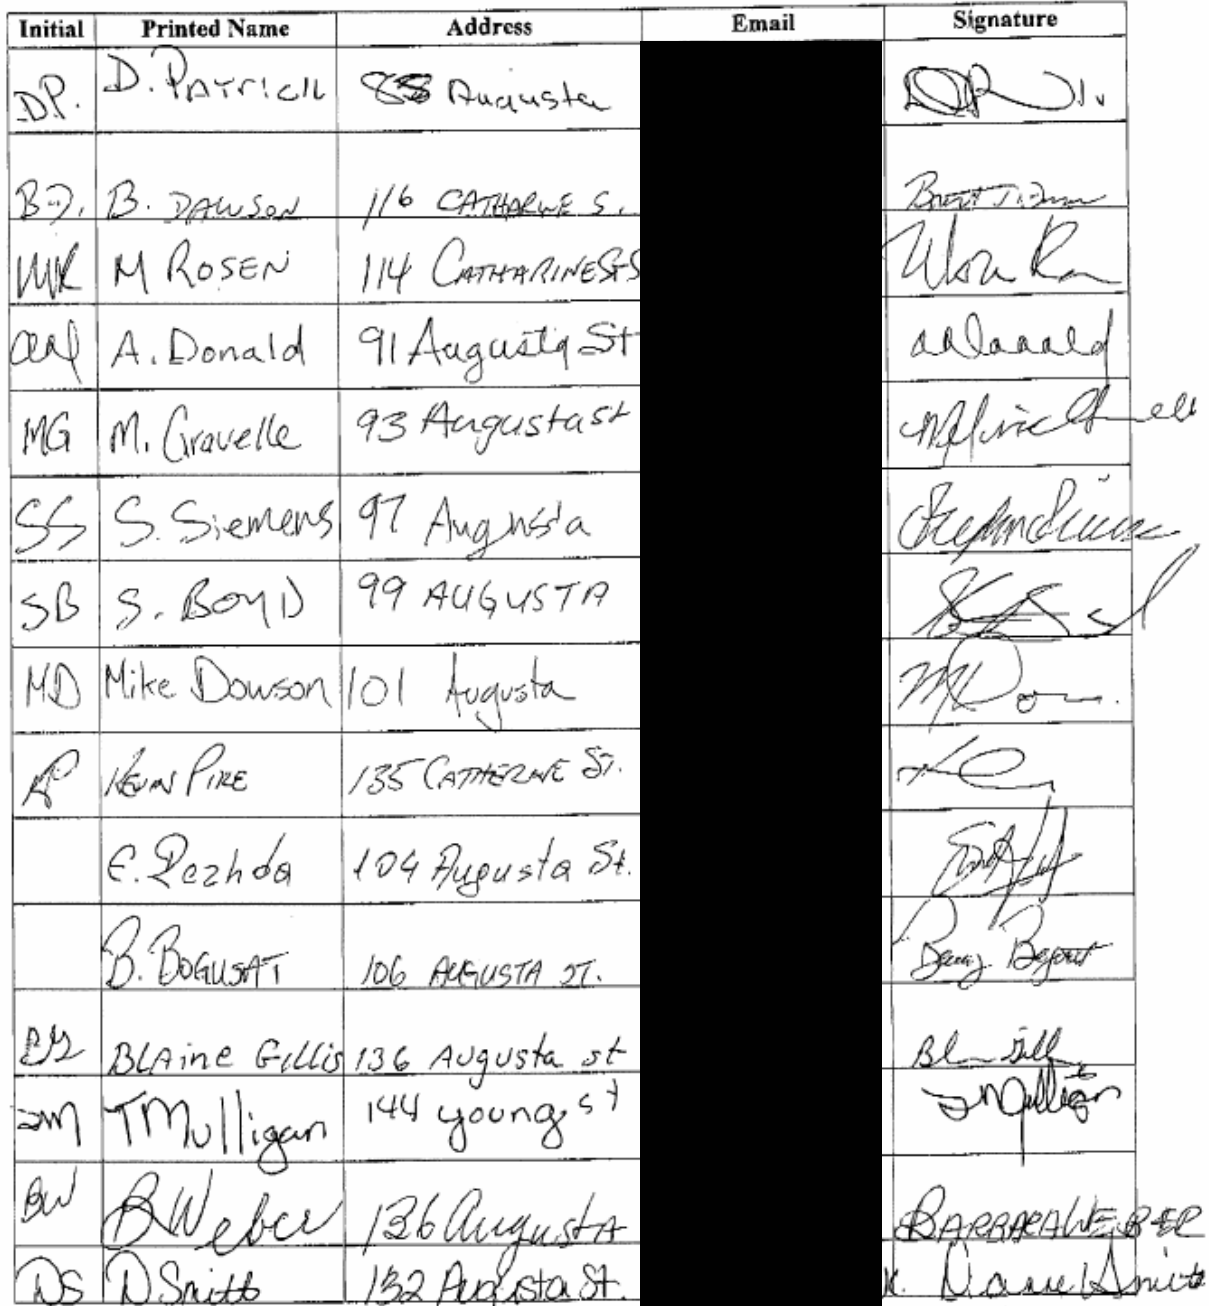 Initial Printed Name Address Email Signature
DP. D. PATRICK 85 Augusta
B.D. B. DAWSON 116 CATHARINE S.
MR M ROSEN 114 CATHARINE ST S
aad A. Donald 91 Augusta St aadonald
MG M. Gravelle 93 Augusta st
SS S. Siemens 97 Augusta
SB S. BOYD 99 AUGUSTA
MD Mike Dowson 101 Augusta
KP KEVIN PIRE 135 CATHERINE ST.
E. Pezhda 104 Augusta St.
B. BOGUSAT 106 AUGUSTA ST.
BG BLAine Gillis 136 Augusta st
TM TMulligan 144 young st TMulligan
BW B Weber 136 Augusta BARBARA WEBER
DS D Smith 132 Augusta St. Smith